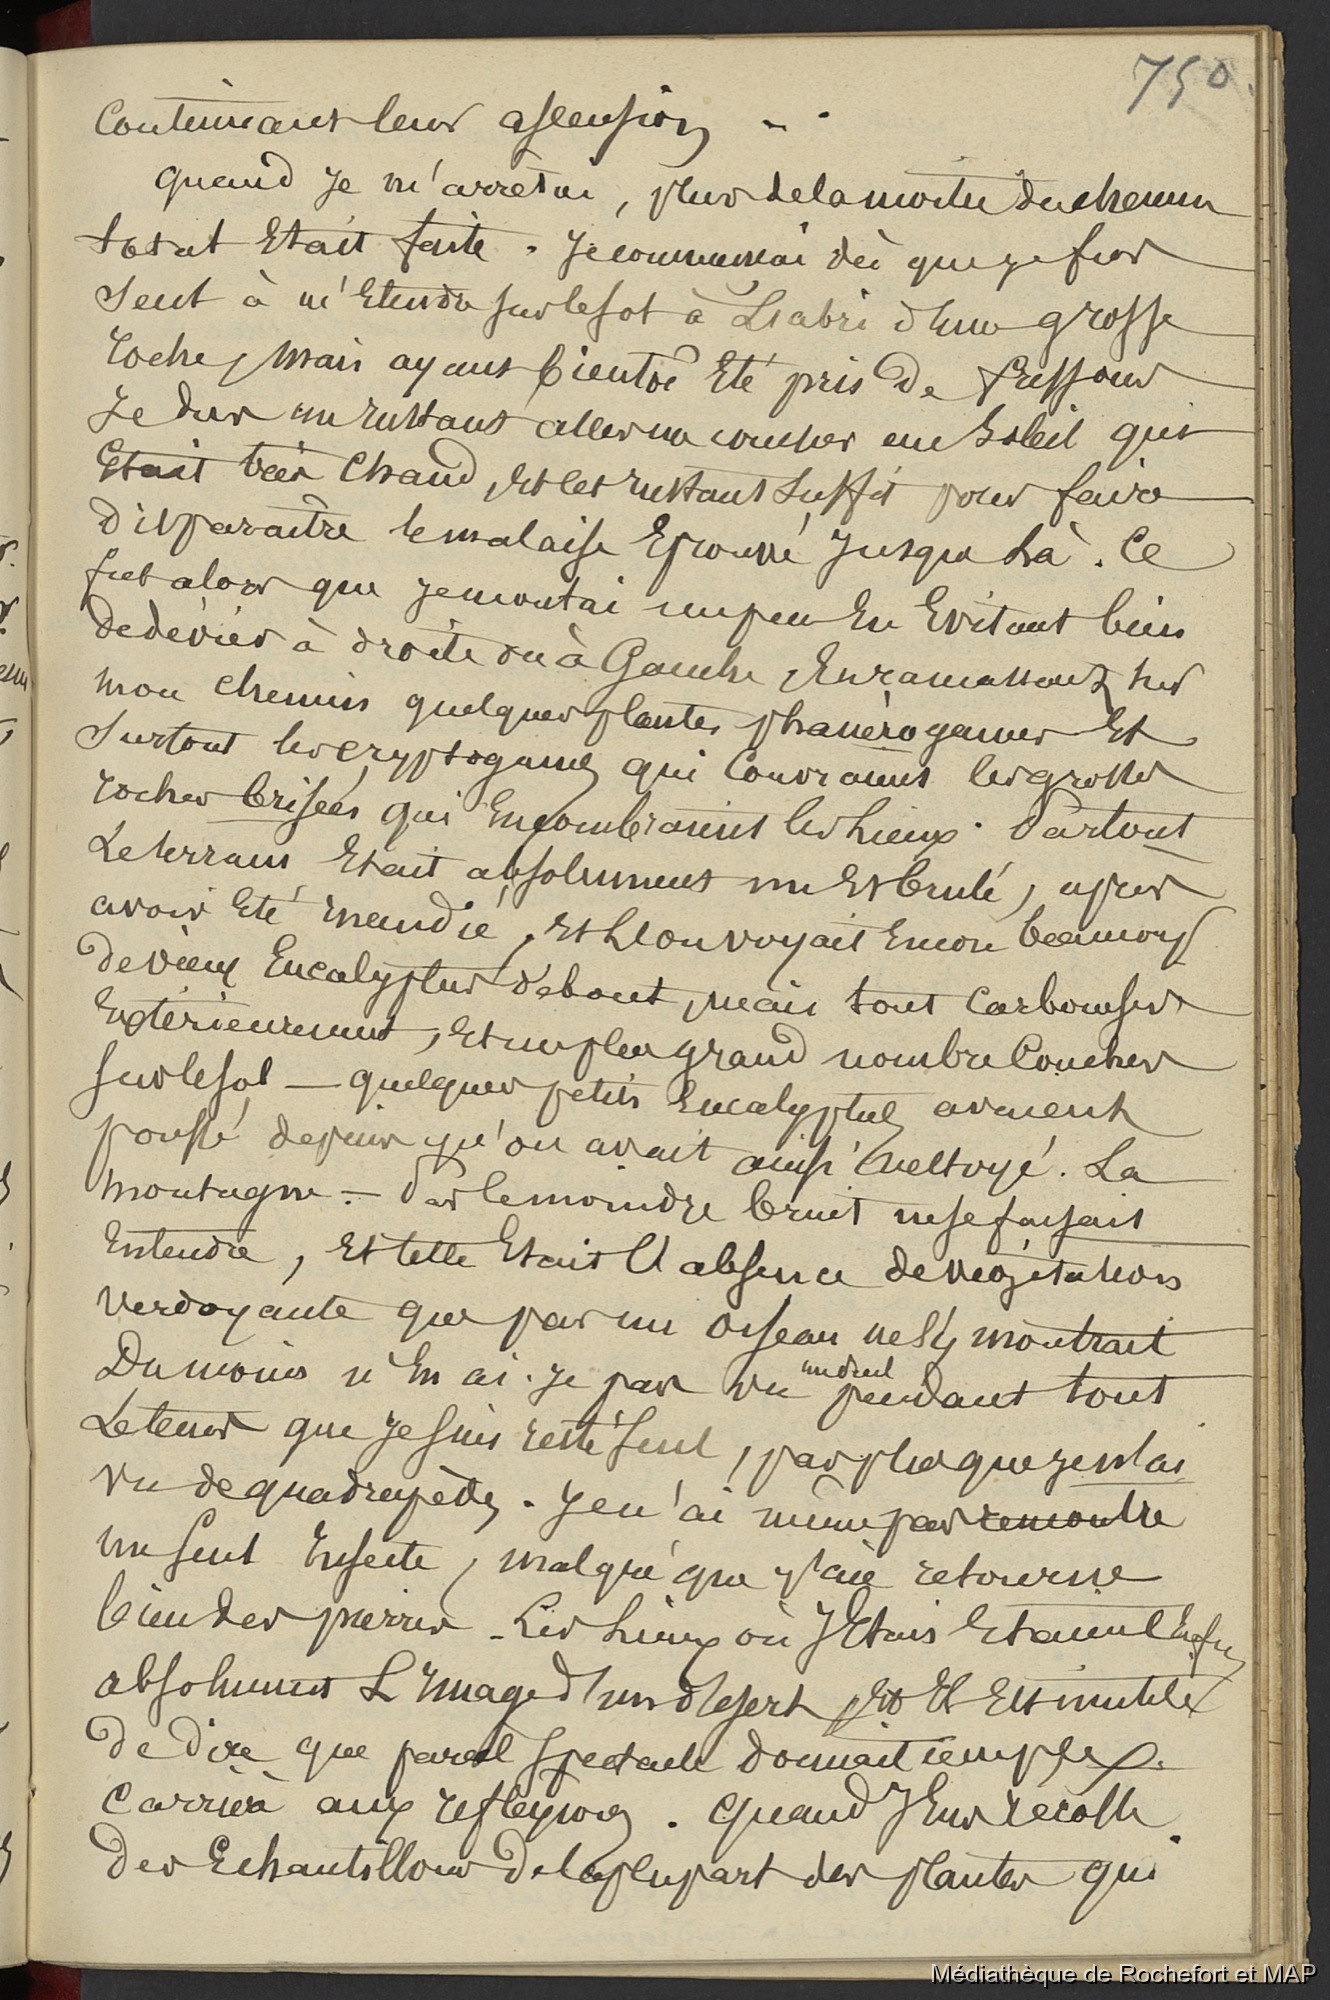 750.
Continuant leur ascension - -
quand je m'arrêtai, plus de la moitié du chemin
total était faite. Je commençai dès que je fus
seul à m'étendre sur le sol à l'abri d'une grosse
roche, mais ayant bientôt été pris de frissons
je dus un instant aller me coucher au soleil qui
était très chaud, et cet instant suffit pour faire
disparaître le malaise éprouvé jusque là. Ce
fut alors que je montai un peu en évitant bien
de dévier à droite ou à gauche, en ramassant sur
mon chemin quelques plantes phanérogames et
surtout les cryptogames qui couvraient les grosses
roches brisées qui encombraient les lieux. Partout
le terrain était absolument nu et brulé, après
avoir été incendié, et l'on voyait encore beaucoup
de vieux Eucalyptus debout, mais tout carbonisés
extérieurement, et un plus grand nombre couchés
sur le sol — quelques petits Eucalyptus avaient
poussé depuis qu'on avait ainsi nettoyé. La
montagne. — Pas le moindre bruit ne se faisait
entendre, et telle était l'absence de végétations
verdoyante que pas un oiseau ne s'y montrait
Du moins n'en ai-je pas vu un seul pendant tout
le tems que je suis resté seul, pas plus que je n'ai
vu de quadrupèdes. Je n'ai même pas rencontré
un seul insecte, malgré que j'aie retourné
bien des pierres. Les lieux où j'étais étaient enfin
absolument l'image d'un désert, et il est inutile
de dire que pareil spectacle donnait ample
carrière aux réflexions. Quand j'eus récolté
des échantillons de la plupart des plantes qui
Médiathèque de Rochefort et MAP